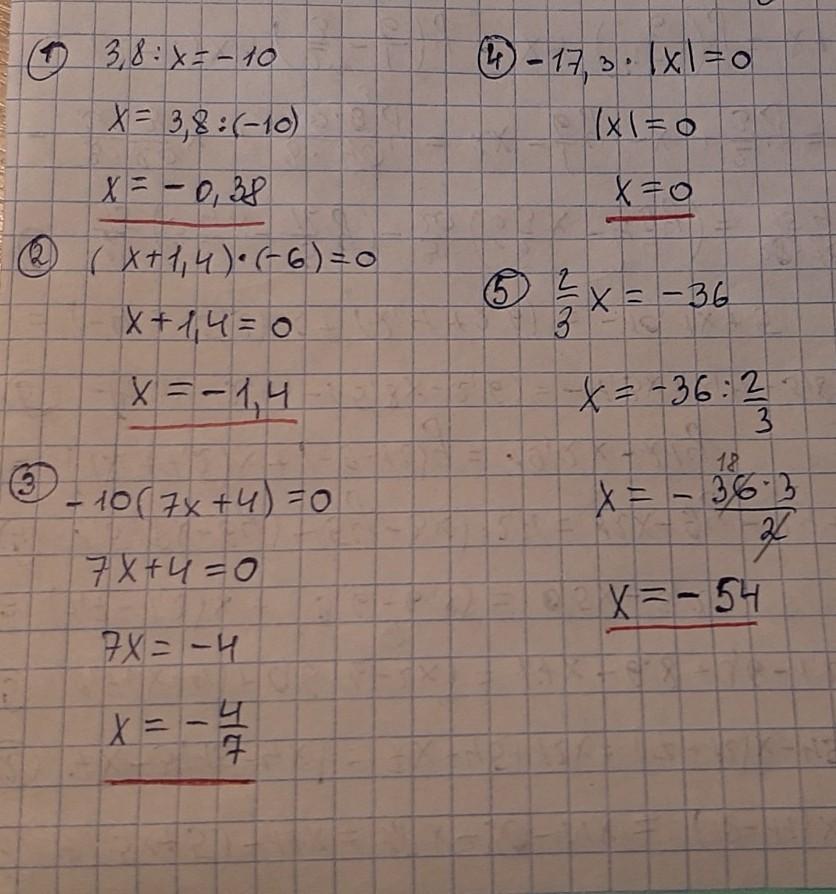 ① 3,8 : x = -10
x = 3,8 : (-10)
x = -0,38
② (x+1,4)·(-6) = 0
x+1,4 = 0
x = -1,4
③ -10(7x+4) = 0
7x+4 = 0
7x = -4
x = -4/7
④ -17,3 · |x| = 0
|x| = 0
x = 0
⑤ 2/3 x = -36
x = -36 : 2/3
18
x = - 36·3/2
x = -54